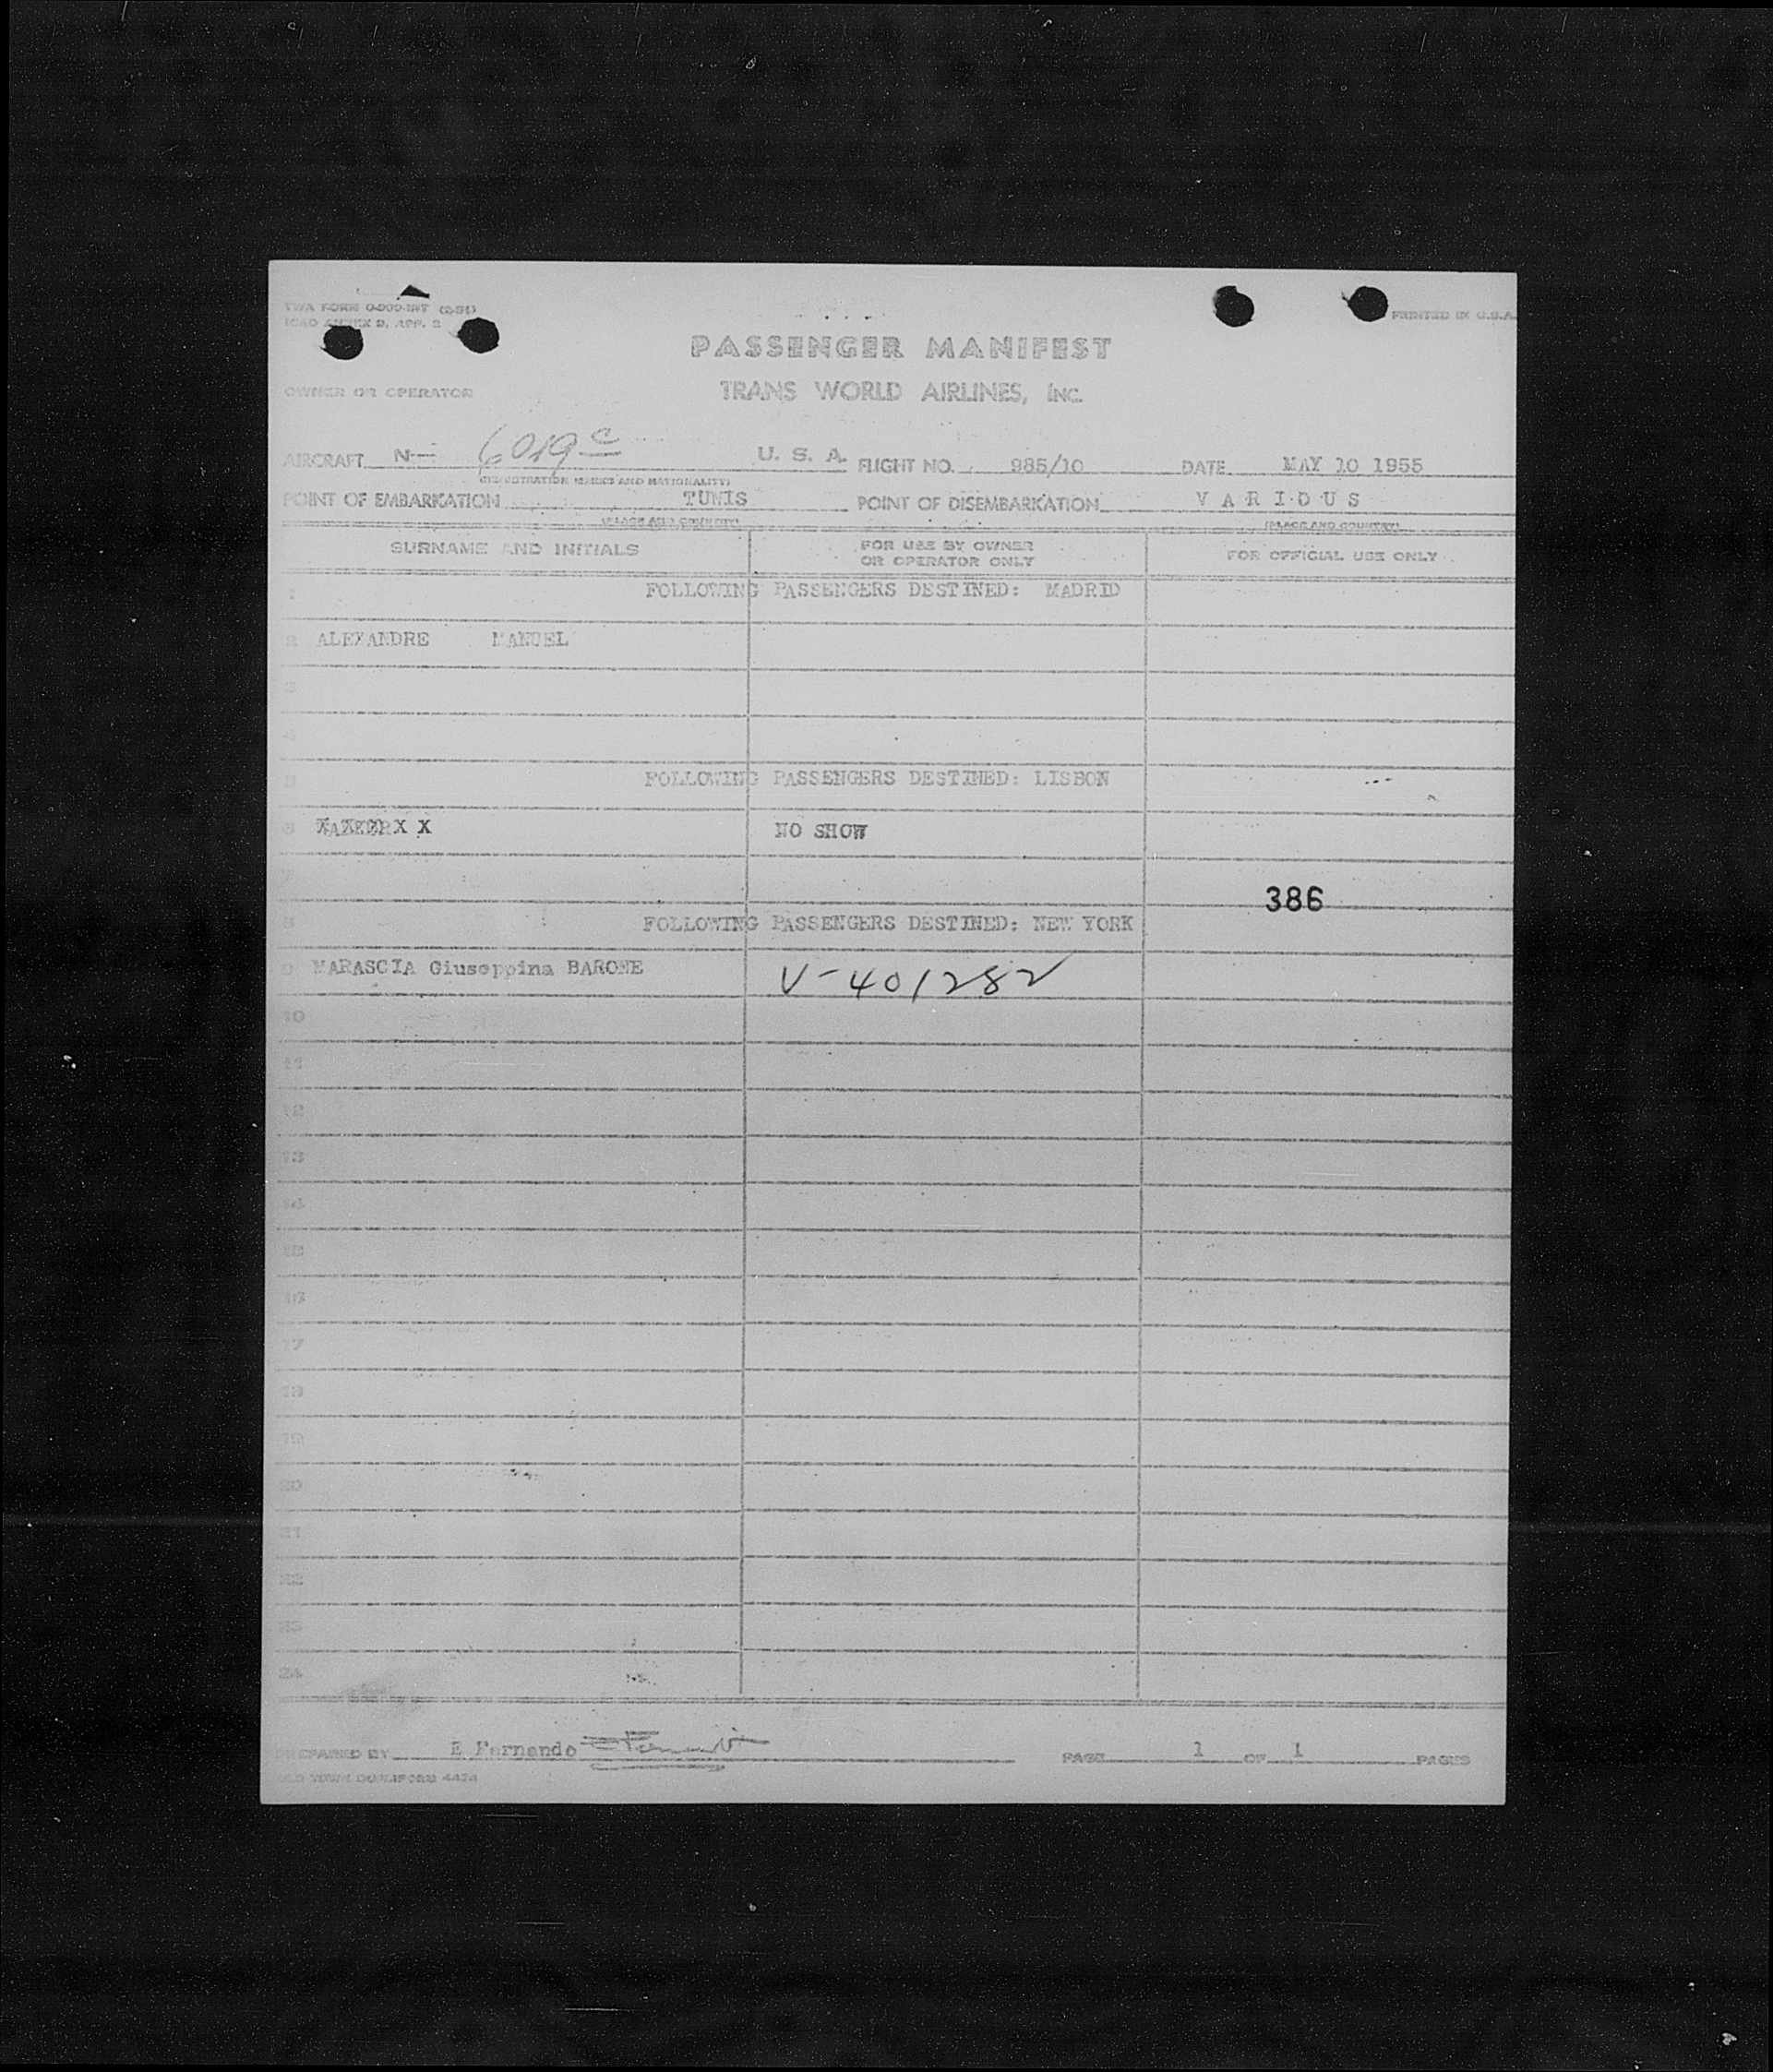 PRINTED IN U.S.A.
PASSENGER MANIFEST
OWNER OR OPERATOR TRANS WORLD AIRLINES, INC.
AIRCRAFT N— 6019c U. S. A. FLIGHT NO. 985/10 DATE MAY 10 1955
(REGISTRATION MARKS AND NATIONALITY)
POINT OF EMBARKATION TUNIS POINT OF DISEMBARKATION V A R I O U S
(PLACE AND COUNTRY) (PLACE AND COUNTRY)
SURNAME AND INITIALS FOR USE BY OWNER OR OPERATOR ONLY FOR OFFICIAL USE ONLY
1 FOLLOWING PASSENGERS DESTINED: MADRID
2 ALEXANDRE MANUEL
3
4
5 FOLLOWING PASSENGERS DESTINED: LISBON
6 NO SHOW
7 386
8 FOLLOWING PASSENGERS DESTINED: NEW YORK
9 MARASCIA Giuseppina BARONE V-401282
10
11
12
13
14
15
16
17
18
19
20
21
22
23
24
PREPARED BY E Fernando PAGE 1 OF 1 PAGES